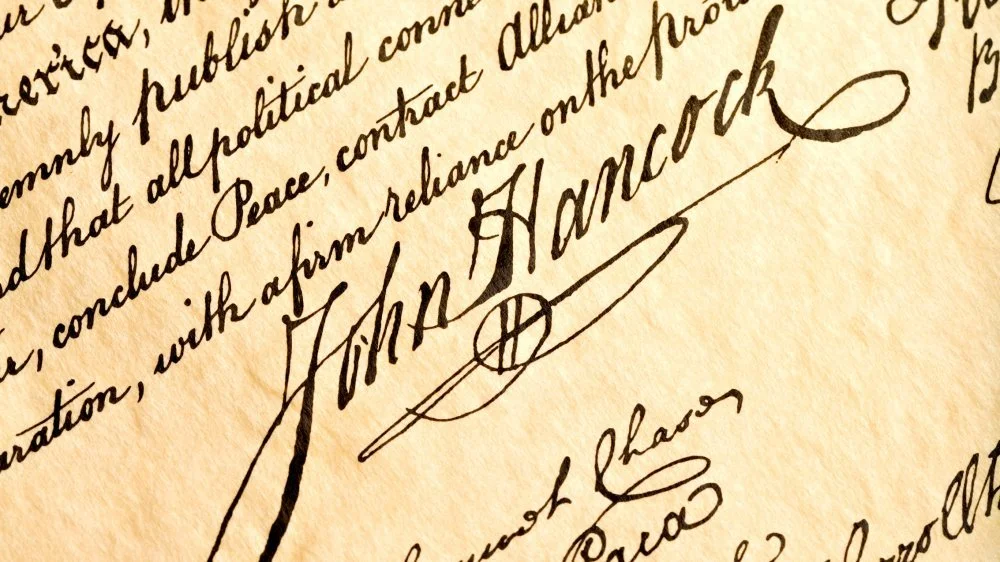 emnly publish
nd that all political conne
r, conclude Peace, contract Allian
aration, with a firm reliance on the pro
John Hancock
Chase
Paca